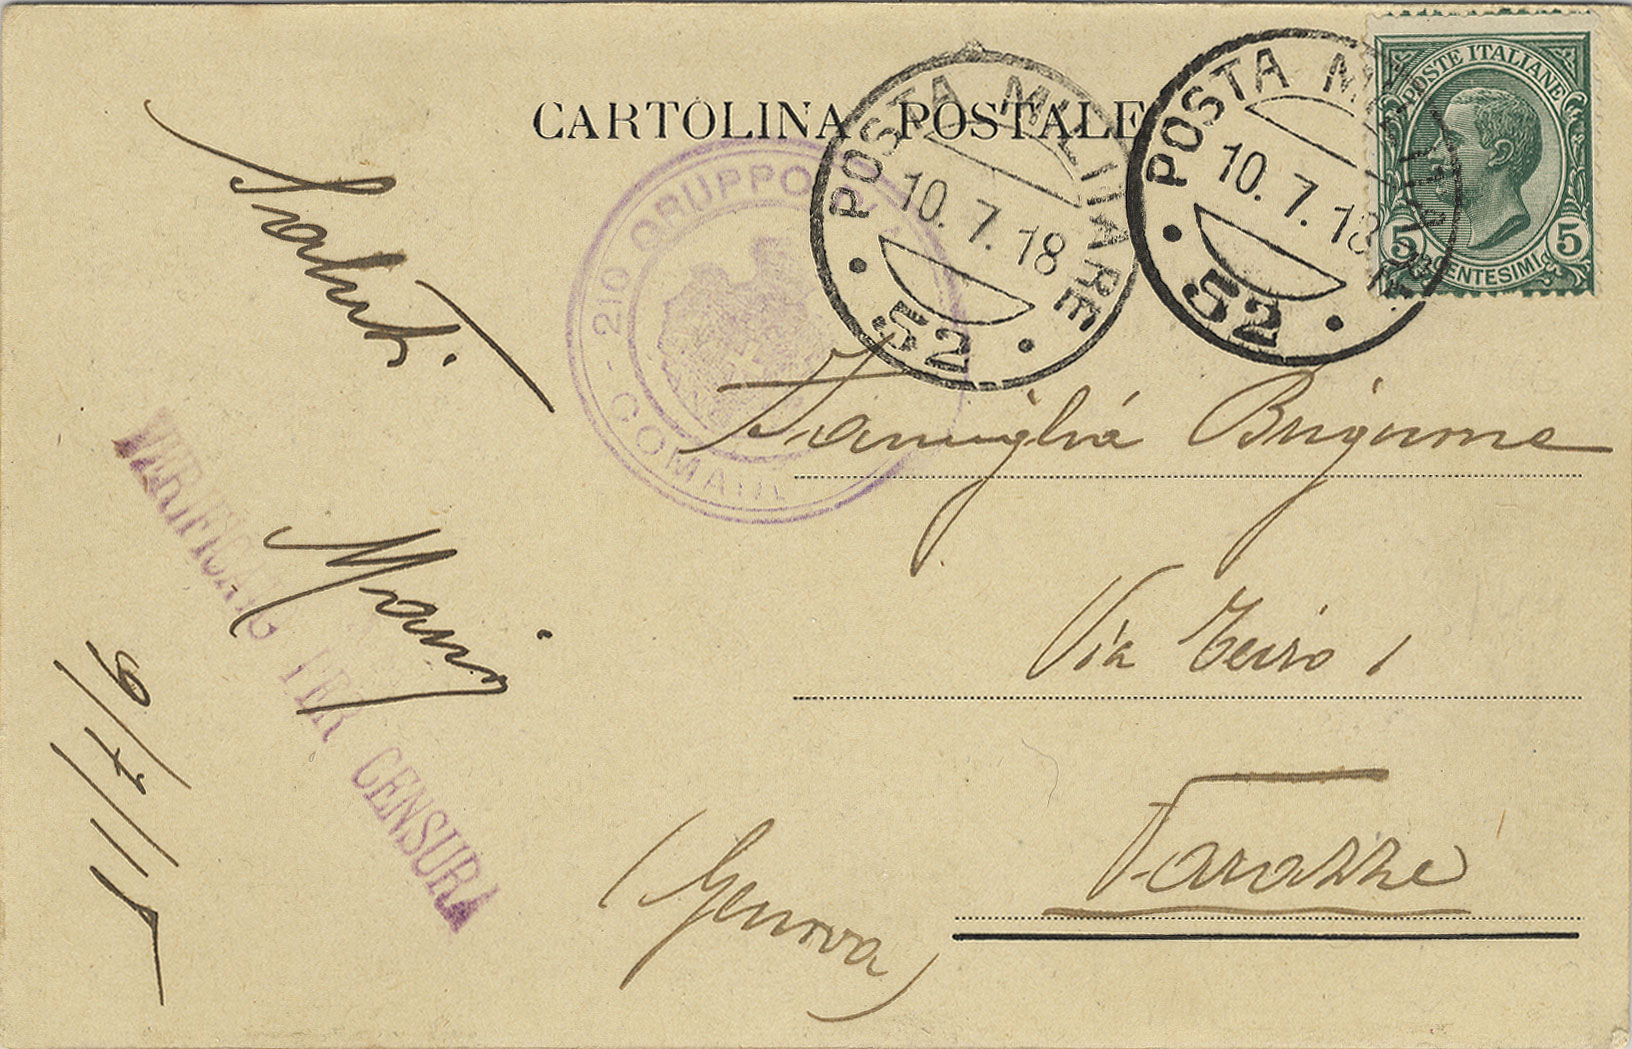 CARTOLINA POSTALE
POSTA MILITARE
10. 7. 18
52
POSTA MILITARE
10. 7. 18
52
POSTE ITALIANE
5 5
CENTESIMI
210 GRUPPO
COMANDO
Saluti
Mario
9/7/18
VERIFICATO PER CENSURA
Famiglia Brignone
Via Teiro 1
Varazze
(Genova)